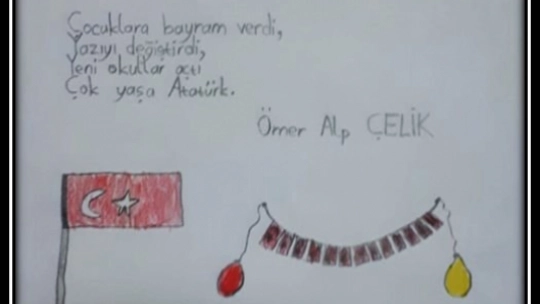 Çocuklara bayram verdi,
Yazıyı değiştirdi,
Yeni okullar açtı
Çok yaşa Atatürk.
Ömer Alp ÇELİK